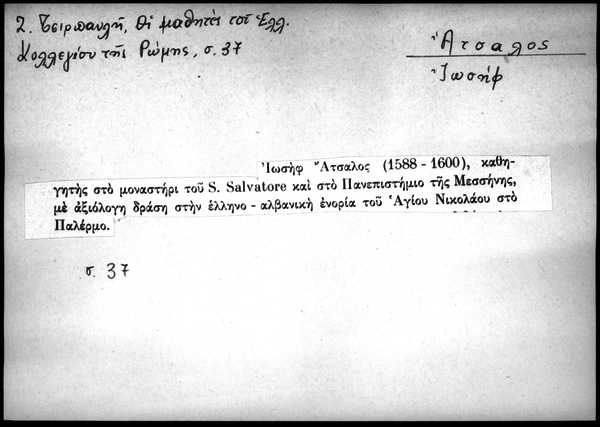 Ζ. Τσιρπανλῆ, Οἱ μαθητὲς τοῦ Ἑλλ.
Κολλεγίου τῆς Ρώμης, σ. 37
Ἄτσαλος
Ἰωσήφ
Ἰωσὴφ Ἄτσαλος (1588 - 1600), καθη-
γητὴς στὸ μοναστήρι τοῦ S. Salvatore καὶ στὸ Πανεπιστήμιο τῆς Μεσσήνης,
μὲ ἀξιόλογη δράση στὴν ἑλληνο - αλβανικὴ ἐνορία τοῦ Ἁγίου Νικολάου στὸ
Παλέρμο.
σ. 37